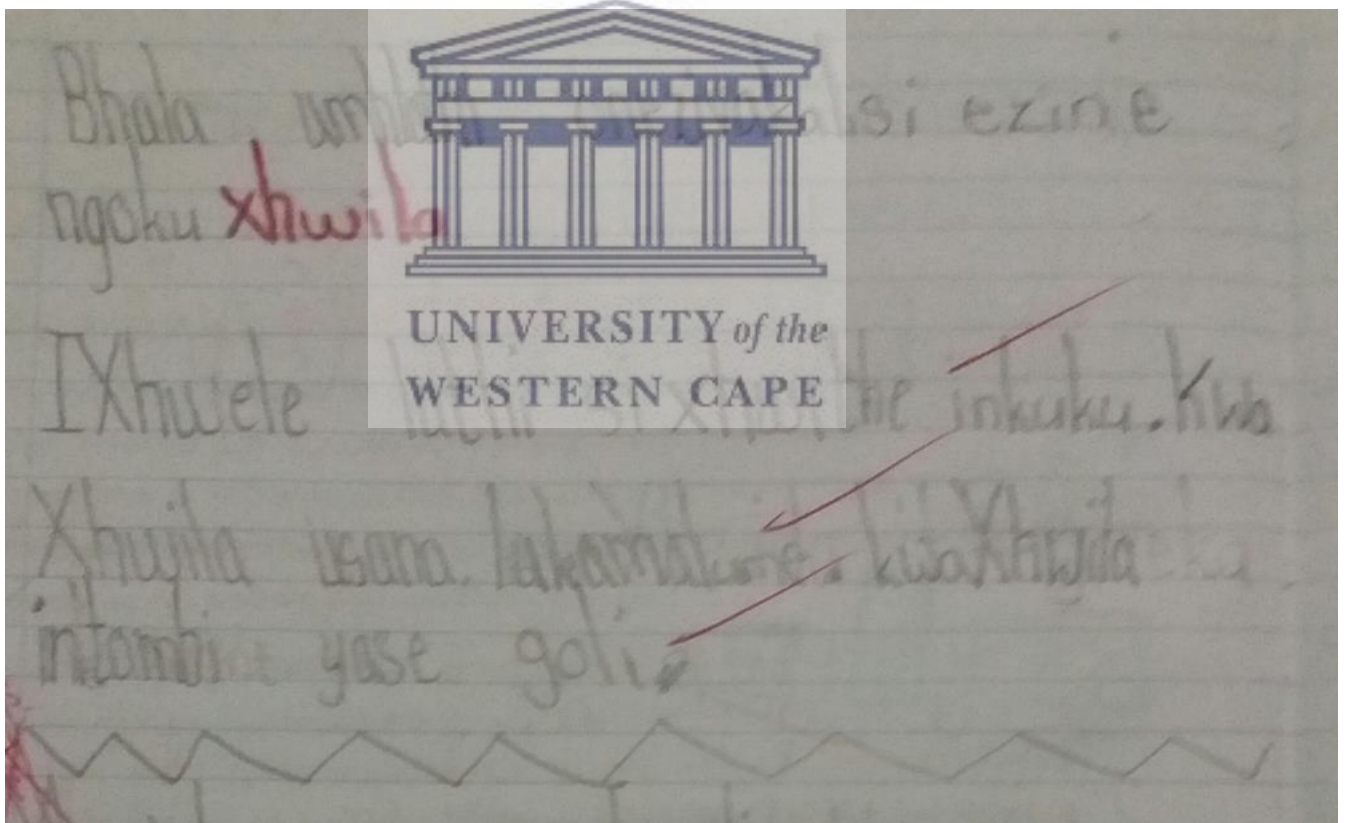 Bhala ezine
ngoku xhwila
UNIVERSITY of the
WESTERN CAPE
IXhwele inkuku. Kwa
Xhwila usana lakamakume. kwaXhwila
intombi yase goli.